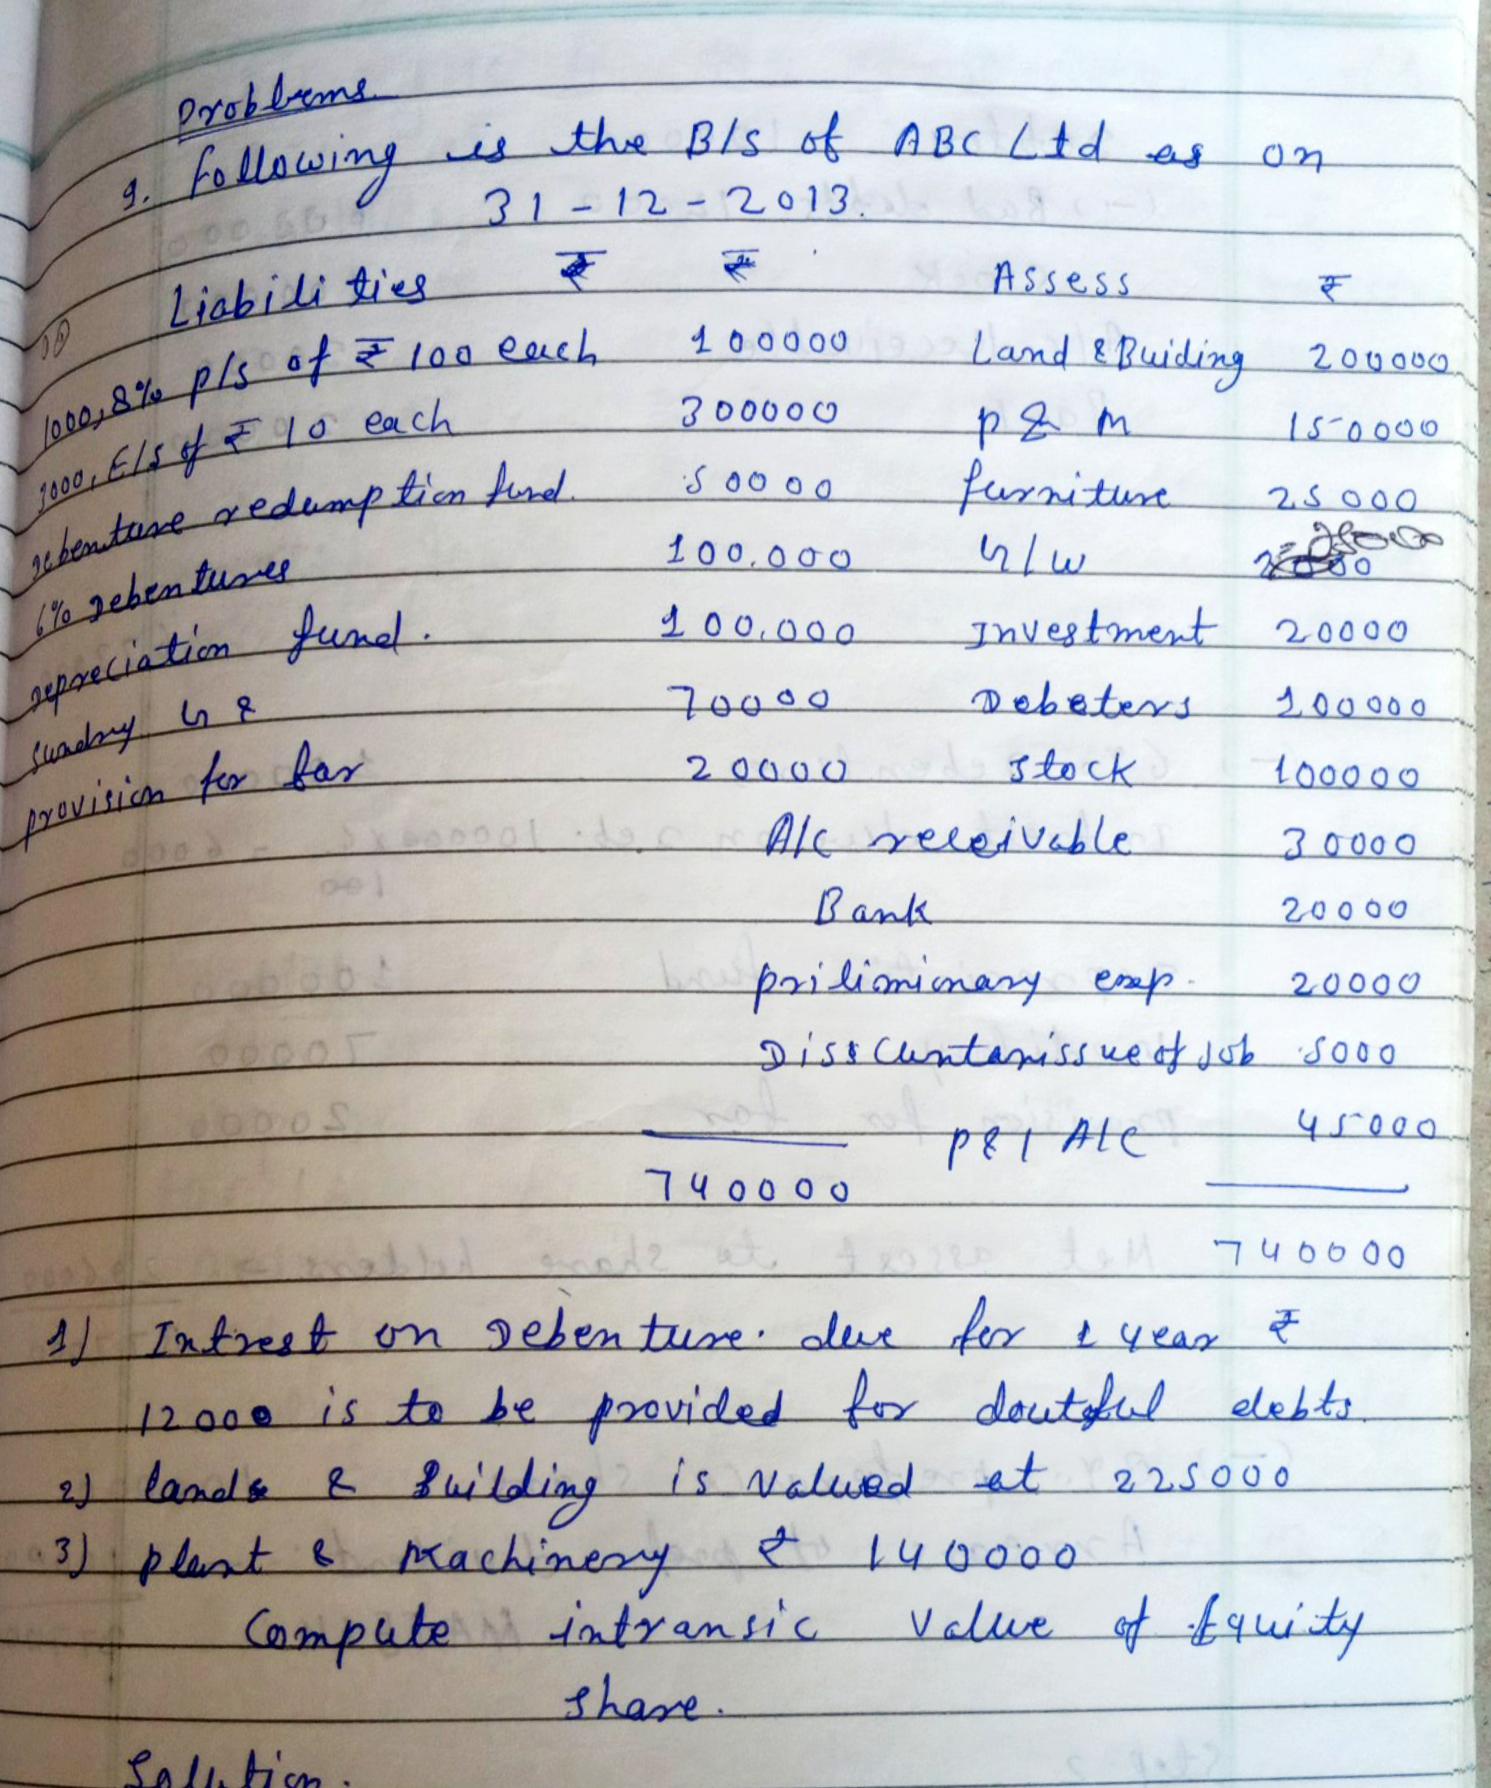 Problems.
9. Following is the B/S of ABC Ltd as on
31-12-2013.
Liabilities ₹ ₹ Assess ₹
1000, 8% P/s of ₹ 100 each 100000 Land & Buiding 200000
3000, E/s of ₹ 10 each 300000 P & M 150000
Debenture redemption fund. 50000 furniture 25000
6% Debentures 100.000 G/w 25000
Depreciation fund. 100.000 Investment 20000
Sundry 70000 Debeters 100000
provision for 20000 Stock 100000
A/c receivable 30000
Bank 20000
prilimionary exp. 20000
5000
P & l A/C 45000
740000
740000
1) Intrest on Debenture. due for 1 year ₹
12000 is to be provided for doutsful debts.
2) land & Building is valued at 225000
3) plant & Machinery ₹ 140000
Compute intransic value of Equity
Share.
Solution.